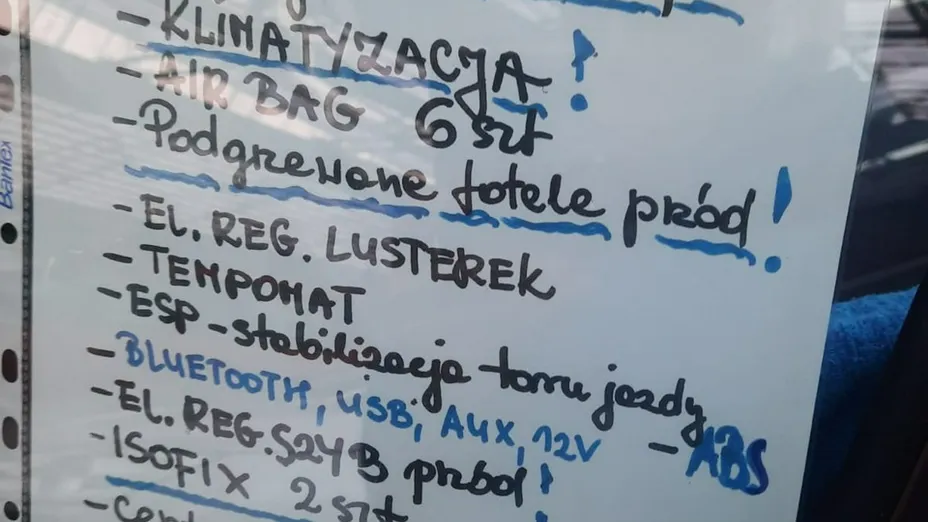 - KLIMATYZACJA !
- AIR BAG 6 szt
- Podgrzewane fotele przód !
- EL. REG. LUSTEREK
- TEMPOMAT
- ESP - stabilizacja toru jazdy
- BLUETOOTH, USB, AUX, 12V
- ABS
- EL. REG. SZYB przód !
- ISOFIX 2 szt
Bantex